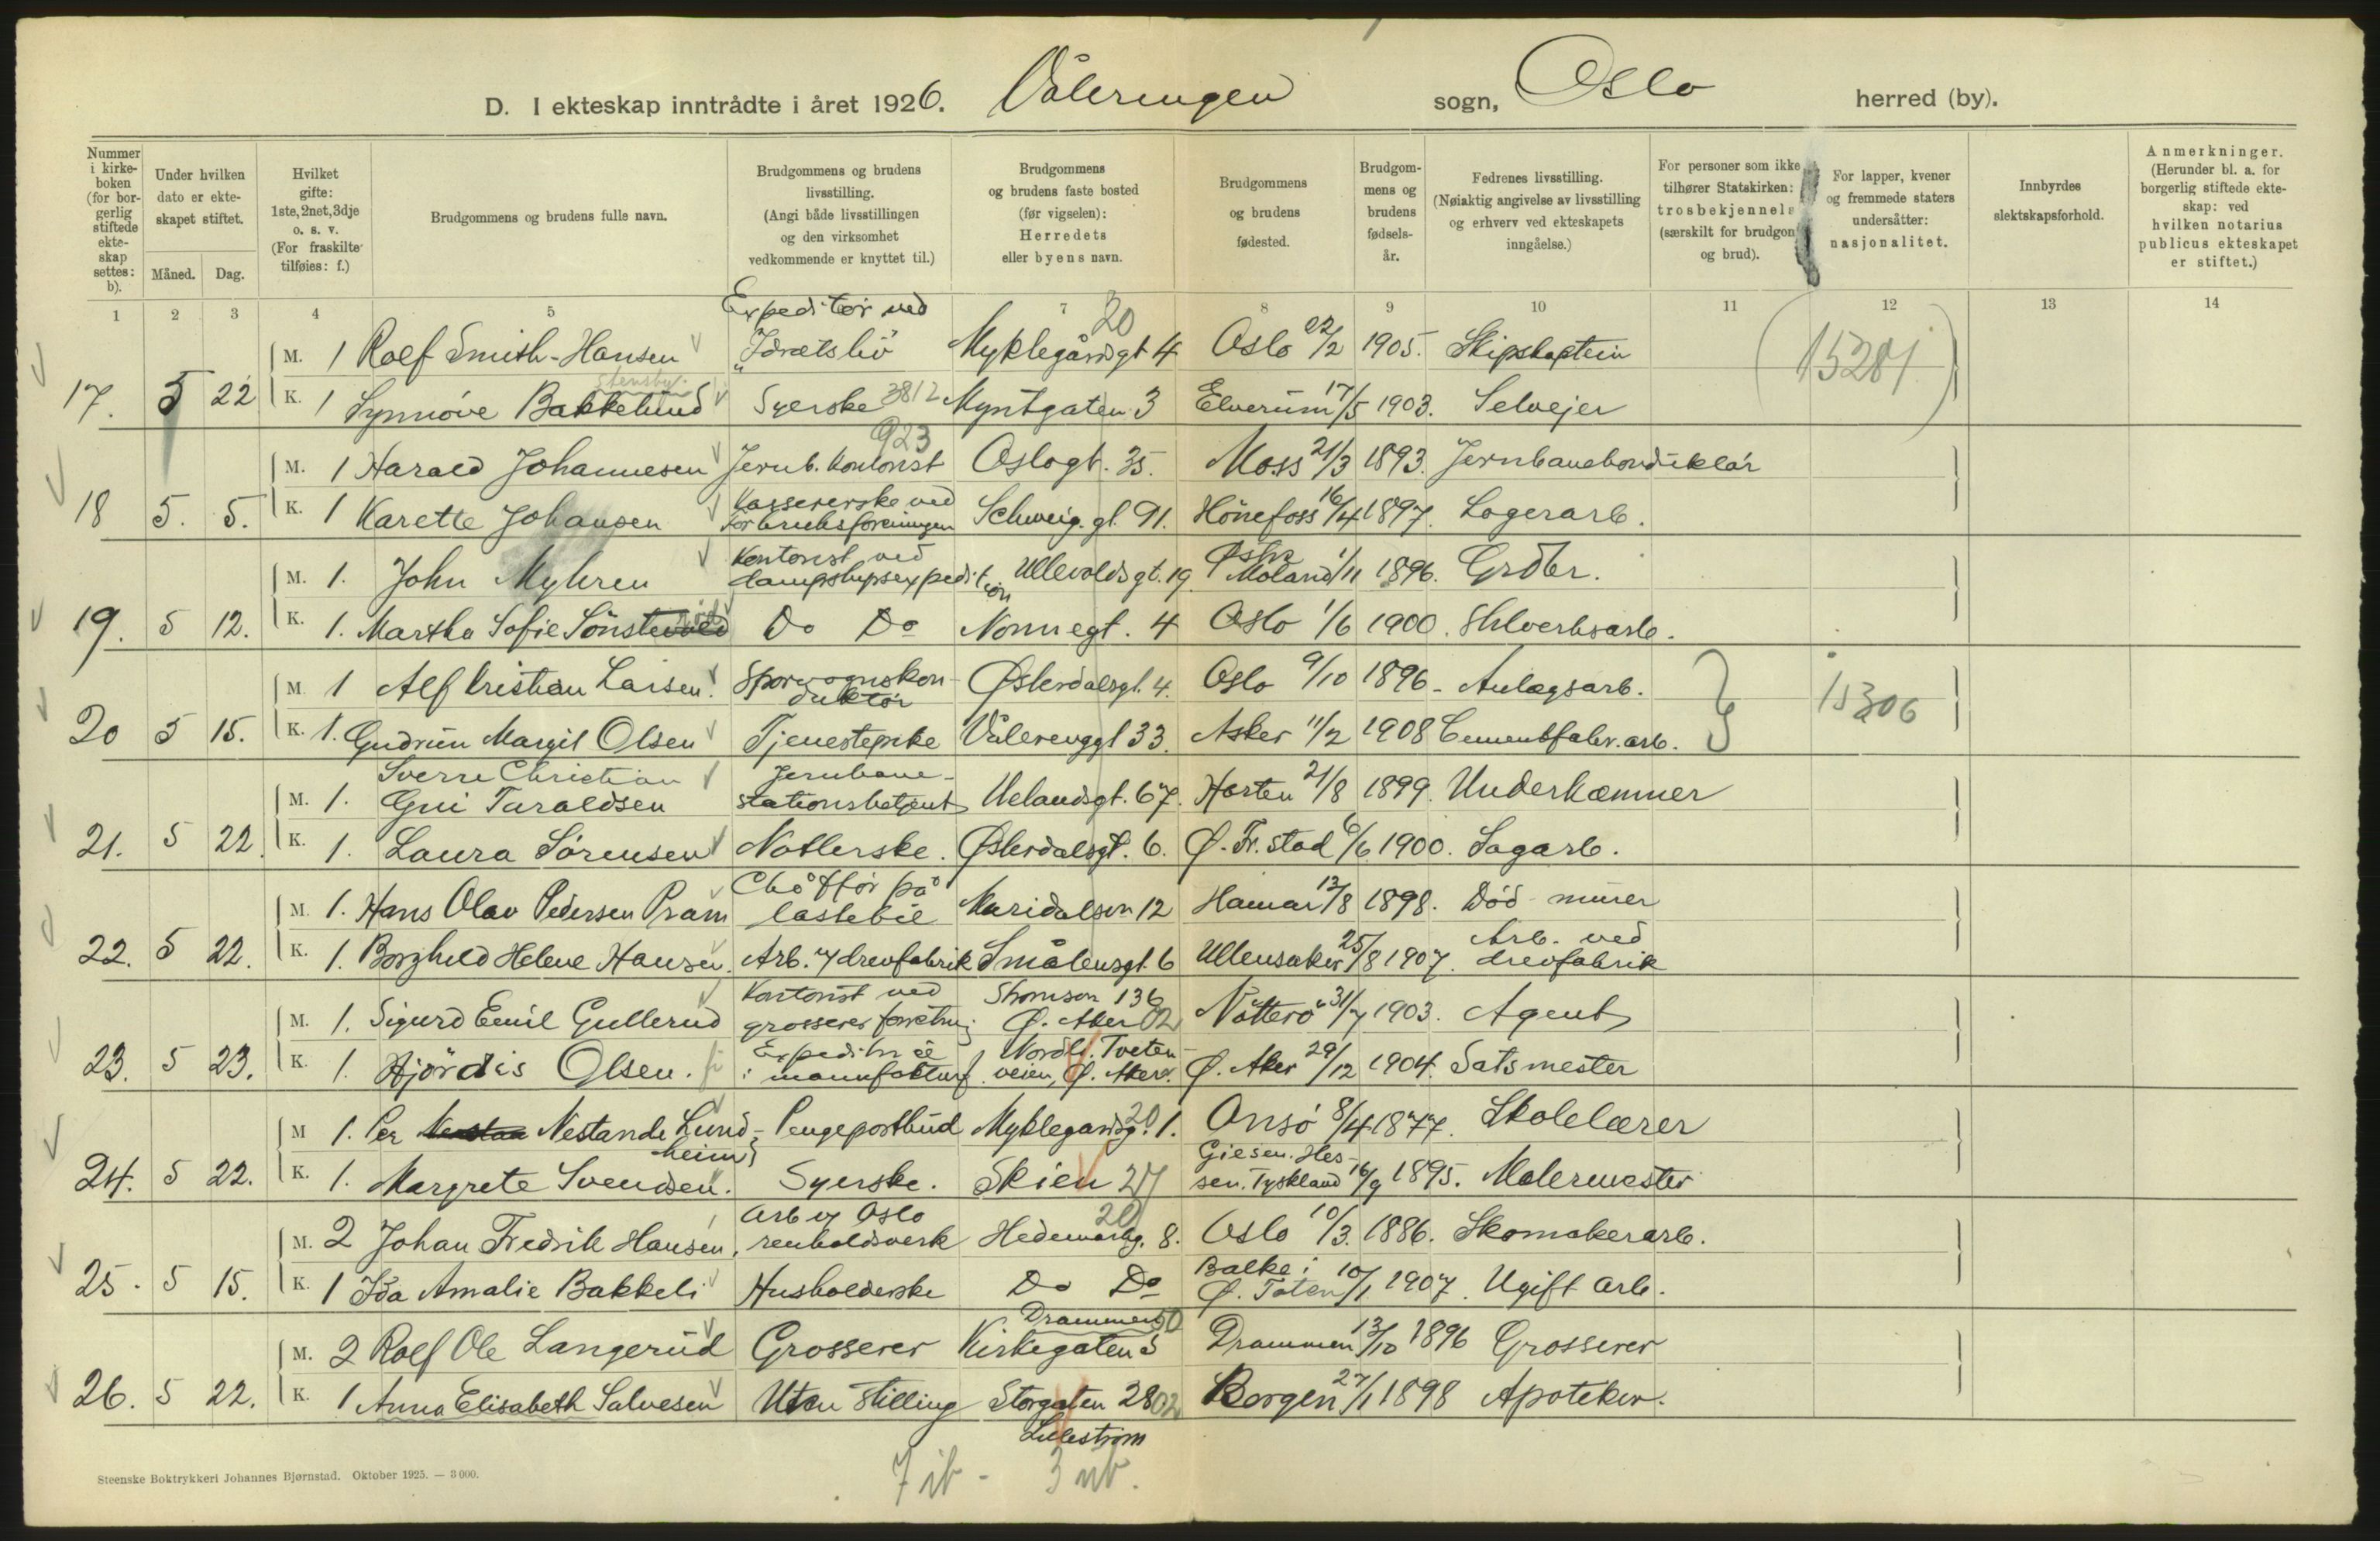 D. I ekteskap inntrådte i året 1926. Våleringen sogn, Oslo herred (by).
Nummer i kirkeboken (for borgerlig stiftede ekteskap settes: b).
Under hvilken dato er ekteskapet stiftet.
Måned. Dag.
Hvilket gifte: 1ste, 2net, 3dje o. s. v. (For fraskilte tilføies: f.)
Brudgommens og brudens fulle navn.
Brudgommens og brudens livsstilling. (Angi både livsstillingen og den virksomhet vedkommende er knyttet til.)
Brudgommens og brudens faste bosted (før vigselen): Herredets eller byens navn.
Brudgommens og brudens fødested.
Brudgommens og brudens fødselsår.
Fedrenes livsstilling. (Nøiaktig angivelse av livsstilling og erhverv ved ekteskapets inngåelse.)
For personer som ikke tilhører Statskirken: trosbekjennelse (særskilt for brudgom og brud).
For lapper, kvener og fremmede staters undersåtter: nasjonalitet.
Innbyrdes slektskapsforhold.
Anmerkninger. (Herunder bl. a. for borgerlig stiftede ekteskap: ved hvilken notarius publicus ekteskapet er stiftet.)
1 2 3 4 5 7 8 9 10 11 12 13 14
Expeditør ved 20
M. 1 Rolf Smith-Hansen "Idrætsliv" Myklegårdsgt 4 Oslo 22/2 1905. Skipskaptein (15281)
Stensby.
17. 5 22 K. 1 Synnöve Bakkelund Syerske 3812 Myntgaten 3 Elverum 17/5 1903. Selvejer
923
M. 1 Harald Johannesen Jernb. kontorist Oslogt. 35. Moss 21/3 1893. Jernbanekonduktør
18 5. 5. K. 1 Karette Johansen Kassererske ved Forbruksforeningen Schweig. gt. 91. Hönefoss 16/4 1897. Lagerarb.
M. 1. John Myhren Kontorist ved dampskipsexpedition Ullevoldsgt. 19. Østre Moland 1/11 1896. Grdbr.
19. 5 12. K. 1. Martha Sofie Sönstevold Do Do Nonnegt. 4 Oslo 1/6 1900.
M 1 Alf Kristian Larsen. Sporvognskonduktør Østerdalsgt. 4. Oslo 9/10 1896. Anlægsarb. 15306
20 5 15. K. 1. Gudrun Margit Olsen Tjenestepike Vålerenggt 33. Asker 11/2 1908 Cementfabr. arb.
Sverre Christian
M. 1. Gui Taraldsen Jernbanestationsbetjent Uelandsgt. 67. Horten 21/8 1899. Underkanoner
21. 5 22. K. 1. Laura Sörensen Østerdalsgt. 6. Ø. Fr. stad 6/6 1900. Sagarb.
M. 1. Hans Olav Pedersen Pram Chåffør på lastebil Maridalsvn 12 Hamar 13/8 1898. Död murer
22. 5 22. K. 1. Borghild Helene Hansen. Arb. v/ drevfabrik Smålensgt. 6 Ullensaker 25/8 1907. Arb. ved drevfabrik
M. 1. Sigurd Emil Gullerud Kontorist ved grossererforretning Strømsvn 136 Ø. Aker 02 Nötterö 31/7 1903. Agent
23. 5 23. K. 1. Hjördis Olsen. i manufakturf. Nordb. Tvetenveien, Ø. Aker. Ø. Aker 29/12 1904. Satsmester
M 1. Per Nestande Lundheim Pengepostbud Myklegardsg. 1. 20 Onsö 8/4 1877. Skolelærer
24. 5 22. K. 1. Margrete Svendsen. Syerske. Skien 27 Giesen. Hessen. Tyskland 16/9 1895. Malermester
M. 2 Johan Fredrik Hansen. Arb v/ Oslo renholdsverk Hedemarksg. 8. 20 Oslo 10/3. 1886. Skomakerarb.
25. 5 15. K. 1 Ida Amalie Bakkeli Husholderske Do Do Balke i Ø. Toten 10/1 1907. Ugift arb.
Drammen 50
M. 2 Rolf Ole Langerud Grosserer Kirkegaten 5 Drammen 13/10 1896 Grosserer
26. 5 22. K. 1 Anna Elisabeth Salvesen Uten stilling Storgaten 28 02 Bergen 27/1 1898 Apoteker.
Lillestrøm
7 ib - 3 ub.
Steenske Boktrykkeri Johannes Bjørnstad. Oktober 1925. — 3 000.